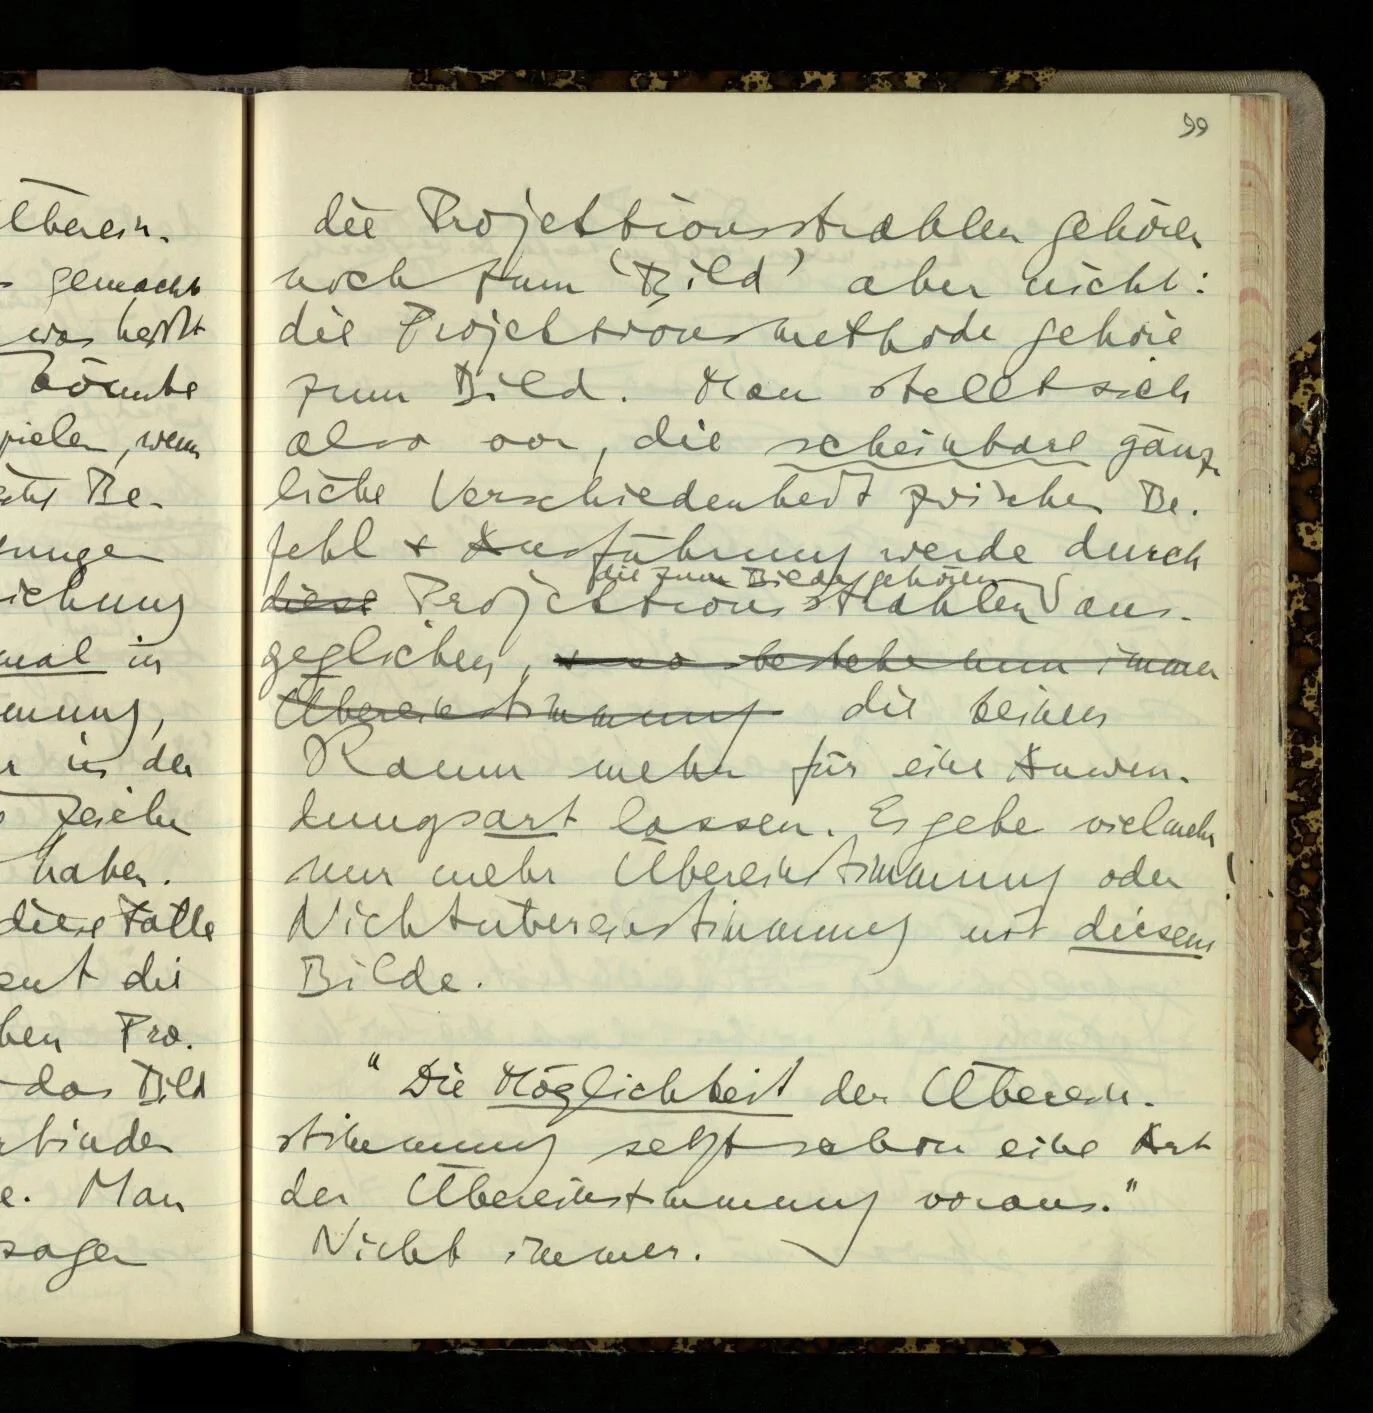 Überein-
gemacht
was heißt
könnte
wenn
Be-
mal in
in der
haben.
diese
die
Pro-
das Bild
Man
sagen
99
die Projektionsstrahlen gehören
noch zum ‘Bild’ aber nicht:
die Projektionsmethode gehöre
zum Bild. Man stellt sich
also vor, die scheinbare gänz-
liche Verschiedenheit zwischen Be-
fehl + Ausführung werde durch
die zum Bilde gehören
diese Projektionsstrahlen aus-
geglichen, + so bestehe nun immer
Übereinstimmung die keinen
Raum mehr für eine Anwen-
dungsart lassen. Es gebe vielmehr
nur mehr Übereinstimmung oder !
Nichtübereinstimmung mit diesem
Bilde.
“Die Möglichkeit der Überein-
stimmung setzt schon eine Art
der Übereinstimmung voraus.”
Nicht immer.